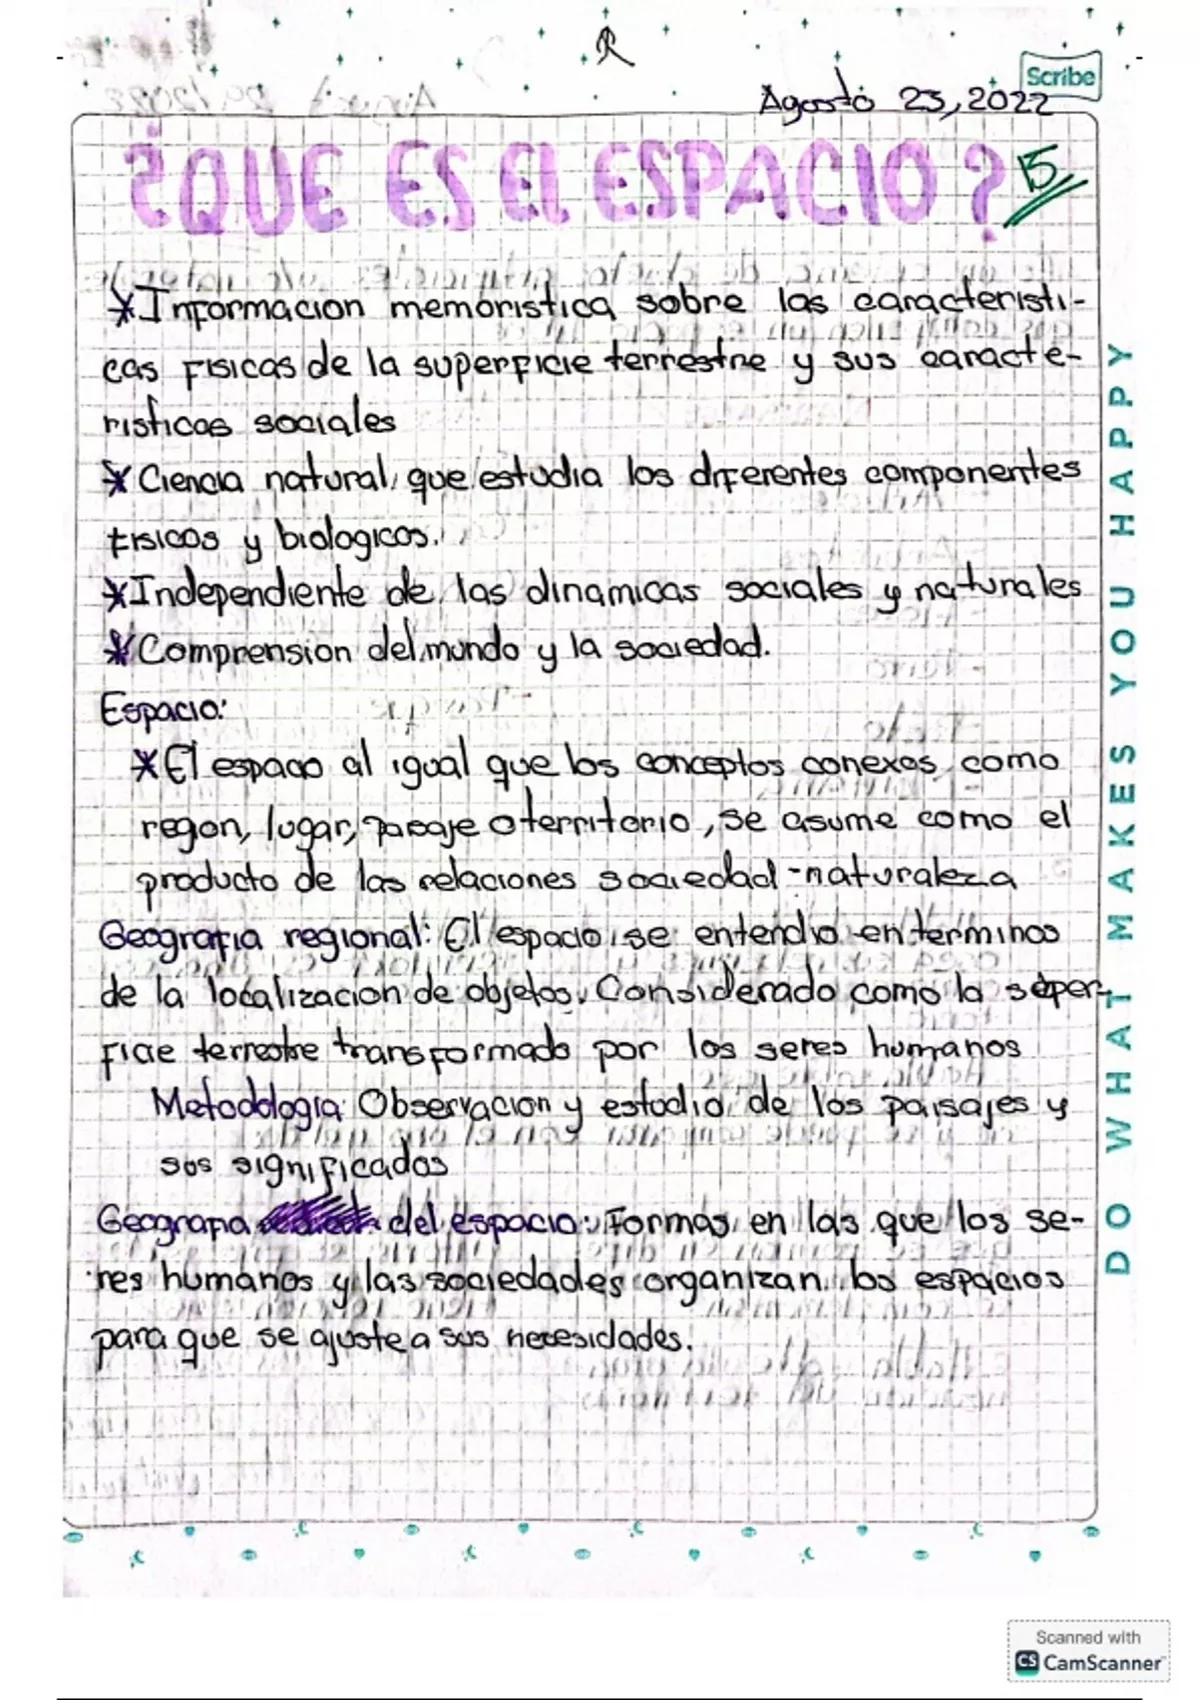 R
Scribe
Agosto 23, 2022
¿QUE ES El ESPACIO?
5
*Informacion memoristica sobre las caracteristi-
cas fisicas de la superficie terrestre y sus caracte-
risticas sociales
*Ciencia natural, que estudia los diferentes componentes
fisicos y biologicos.
*Independiente de las dinamicas sociales y naturales
*Comprension del mundo y la sociedad.
Espacio:
*El espacio al igual que los conceptos conexos como
region, lugar, paisaje o territorio, se asume como el
producto de las relaciones sociedad-naturaleza
Geografia regional: El espacio se entendio en terminos
de la localizacion de objetos. Considerado como la super-
ficie terrestre transformado por los seres humanos
Metodologia: Observacion y estudio de los paisajes y
sus significados
Geografia del espacio: Formas en las que los se-
res humanos y las sociedades organizan los espacios
para que se ajuste a sus necesidades.
DO WHAT MAKES YOU HAPPY
Scanned with
CS CamScanner